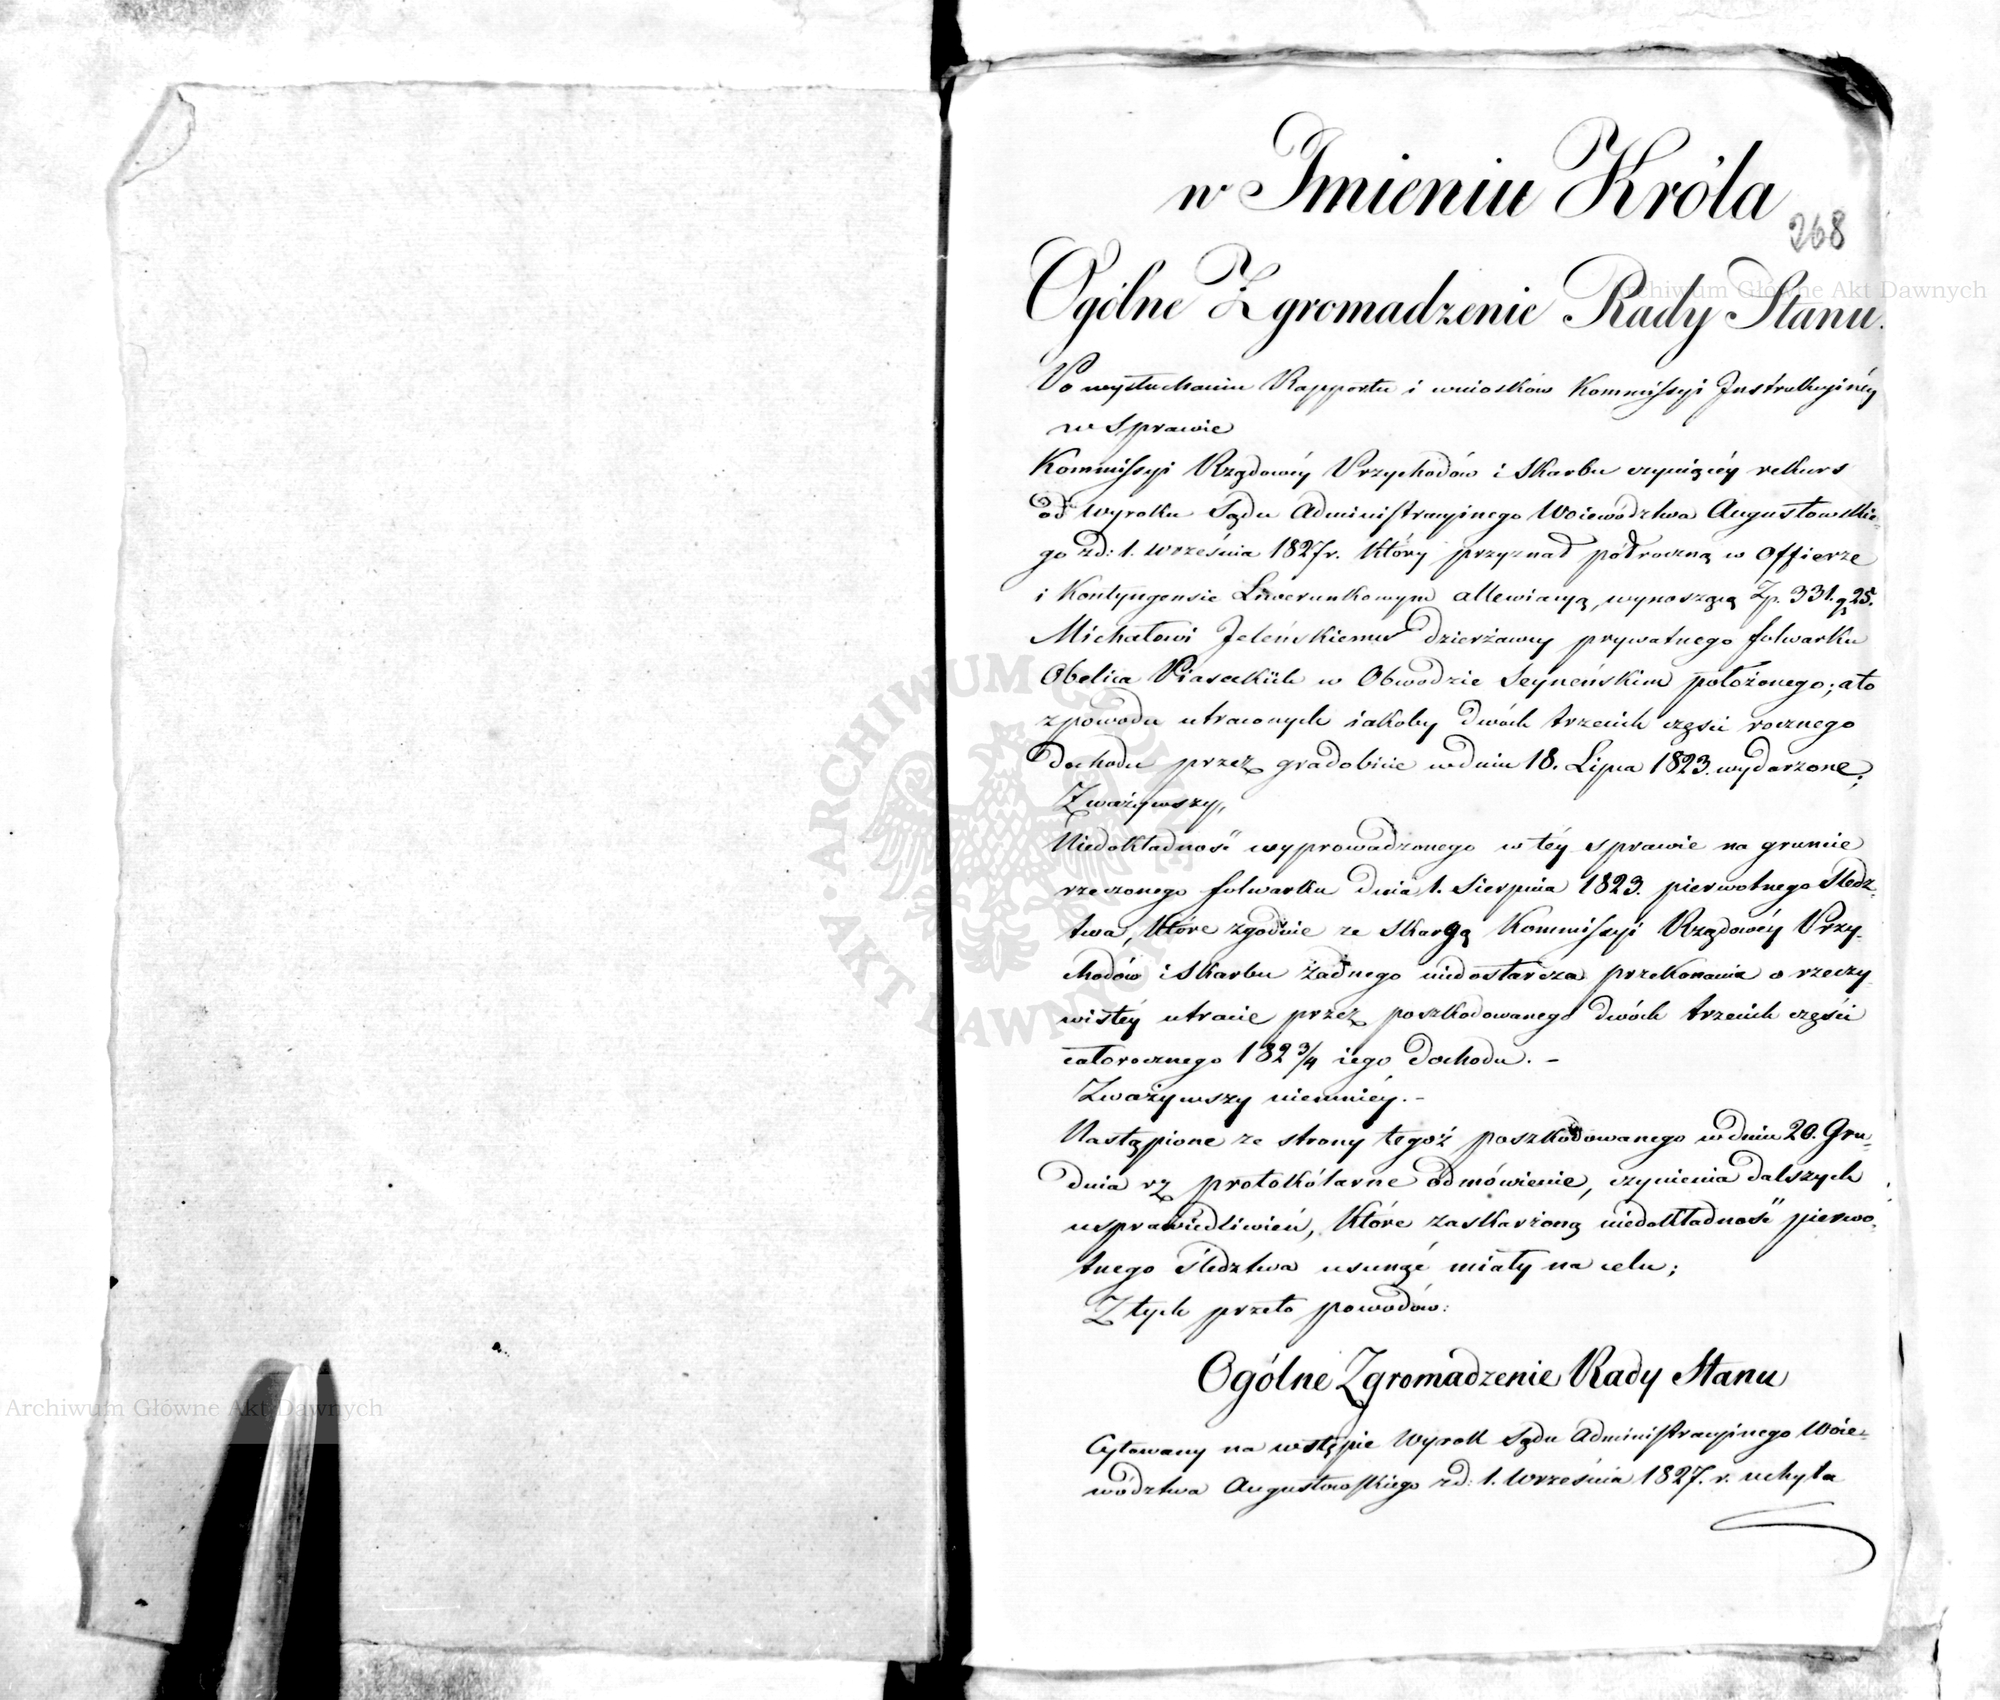 w Imieniu Króla
268
Ogólne Zgromadzenie Rady Stanu.
Po wysłuchaniu Rapportu i wniosków Kommissyi Instrukcyinéy
w sprawie
Kommissyi Rządowéy Przychodów i Skarbu czyniącéy rekurs
od wyroku Sądu Administracyinego Woiewództwa Augustowskie-
go z d: 1. września 1827 r. który przyznał półroczną w offierze
i kontyngensie Liwerunkowym allewiacyą, wynoszącą Zp. 331. g 25.
Michałowi Jeleńskiemu dzierżawcy prywatnego folwarku
Obelica Piaseckich w Obwodzie Seyneńskim położonego; a to
z powodu utraconych iakoby dwóch trzecich części rocznego
dochodu przez gradobicie w dniu 18. Lipca 1823. wydarzone;
Zważywszy,
Niedokładność wyprowadzonego w téy sprawie na gruncie
rzeczonego folwarku dnia 1. Sierpnia 1823. pierwotnego śledz-
twa, które zgodnie ze skargą Kommissyi Rządowéy Przy-
chodów i Skarbu żadnego niedostarcza przekonania o rzeczy
wistéy utracie przez poszkodowanego dwóch trzecich części
całorocznego 182 3/4 iego dochodu. -
Zważywszy niemniéy. -
Nastąpione ze strony tegoż poszkodowanego w dniu 20. Gru-
dnia rz protokólarne odmówienie, czynienia dalszych
usprawiedliwień, które zaskarżoną niedokładność pierwo-
tnego śledztwa usunąć miały na celu;
Z tych przeto powodów:
Ogólne Zgromadzenie Rady Stanu
Cytowany na wstępie Wyrok Sądu Administracyinego Woie-
wództwa Augustowskiego z d: 1. Września 1827. r. uchyla
Archiwum Główne Akt Dawnych
Archiwum Główne Akt Dawnych